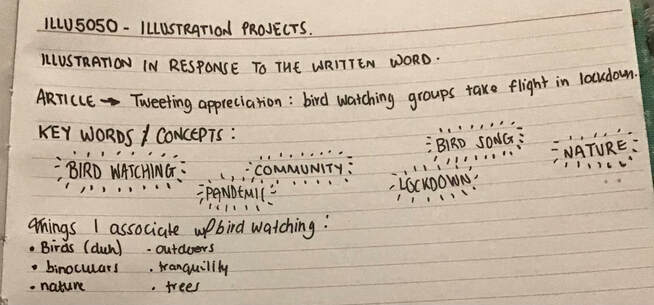 ILLU5050 - ILLUSTRATION PROJECTS.
ILLUSTRATION IN RESPONSE TO THE WRITTEN WORD.
ARTICLE → Tweeting appreciation: bird watching groups take flight in lockdown.
KEY WORDS / CONCEPTS:
BIRD WATCHING COMMUNITY BIRD SONG NATURE
PANDEMIC LOCKDOWN
Things I associate w/ bird watching:
• Birds (duh) • outdoors
• binoculars • tranquility
• nature • trees